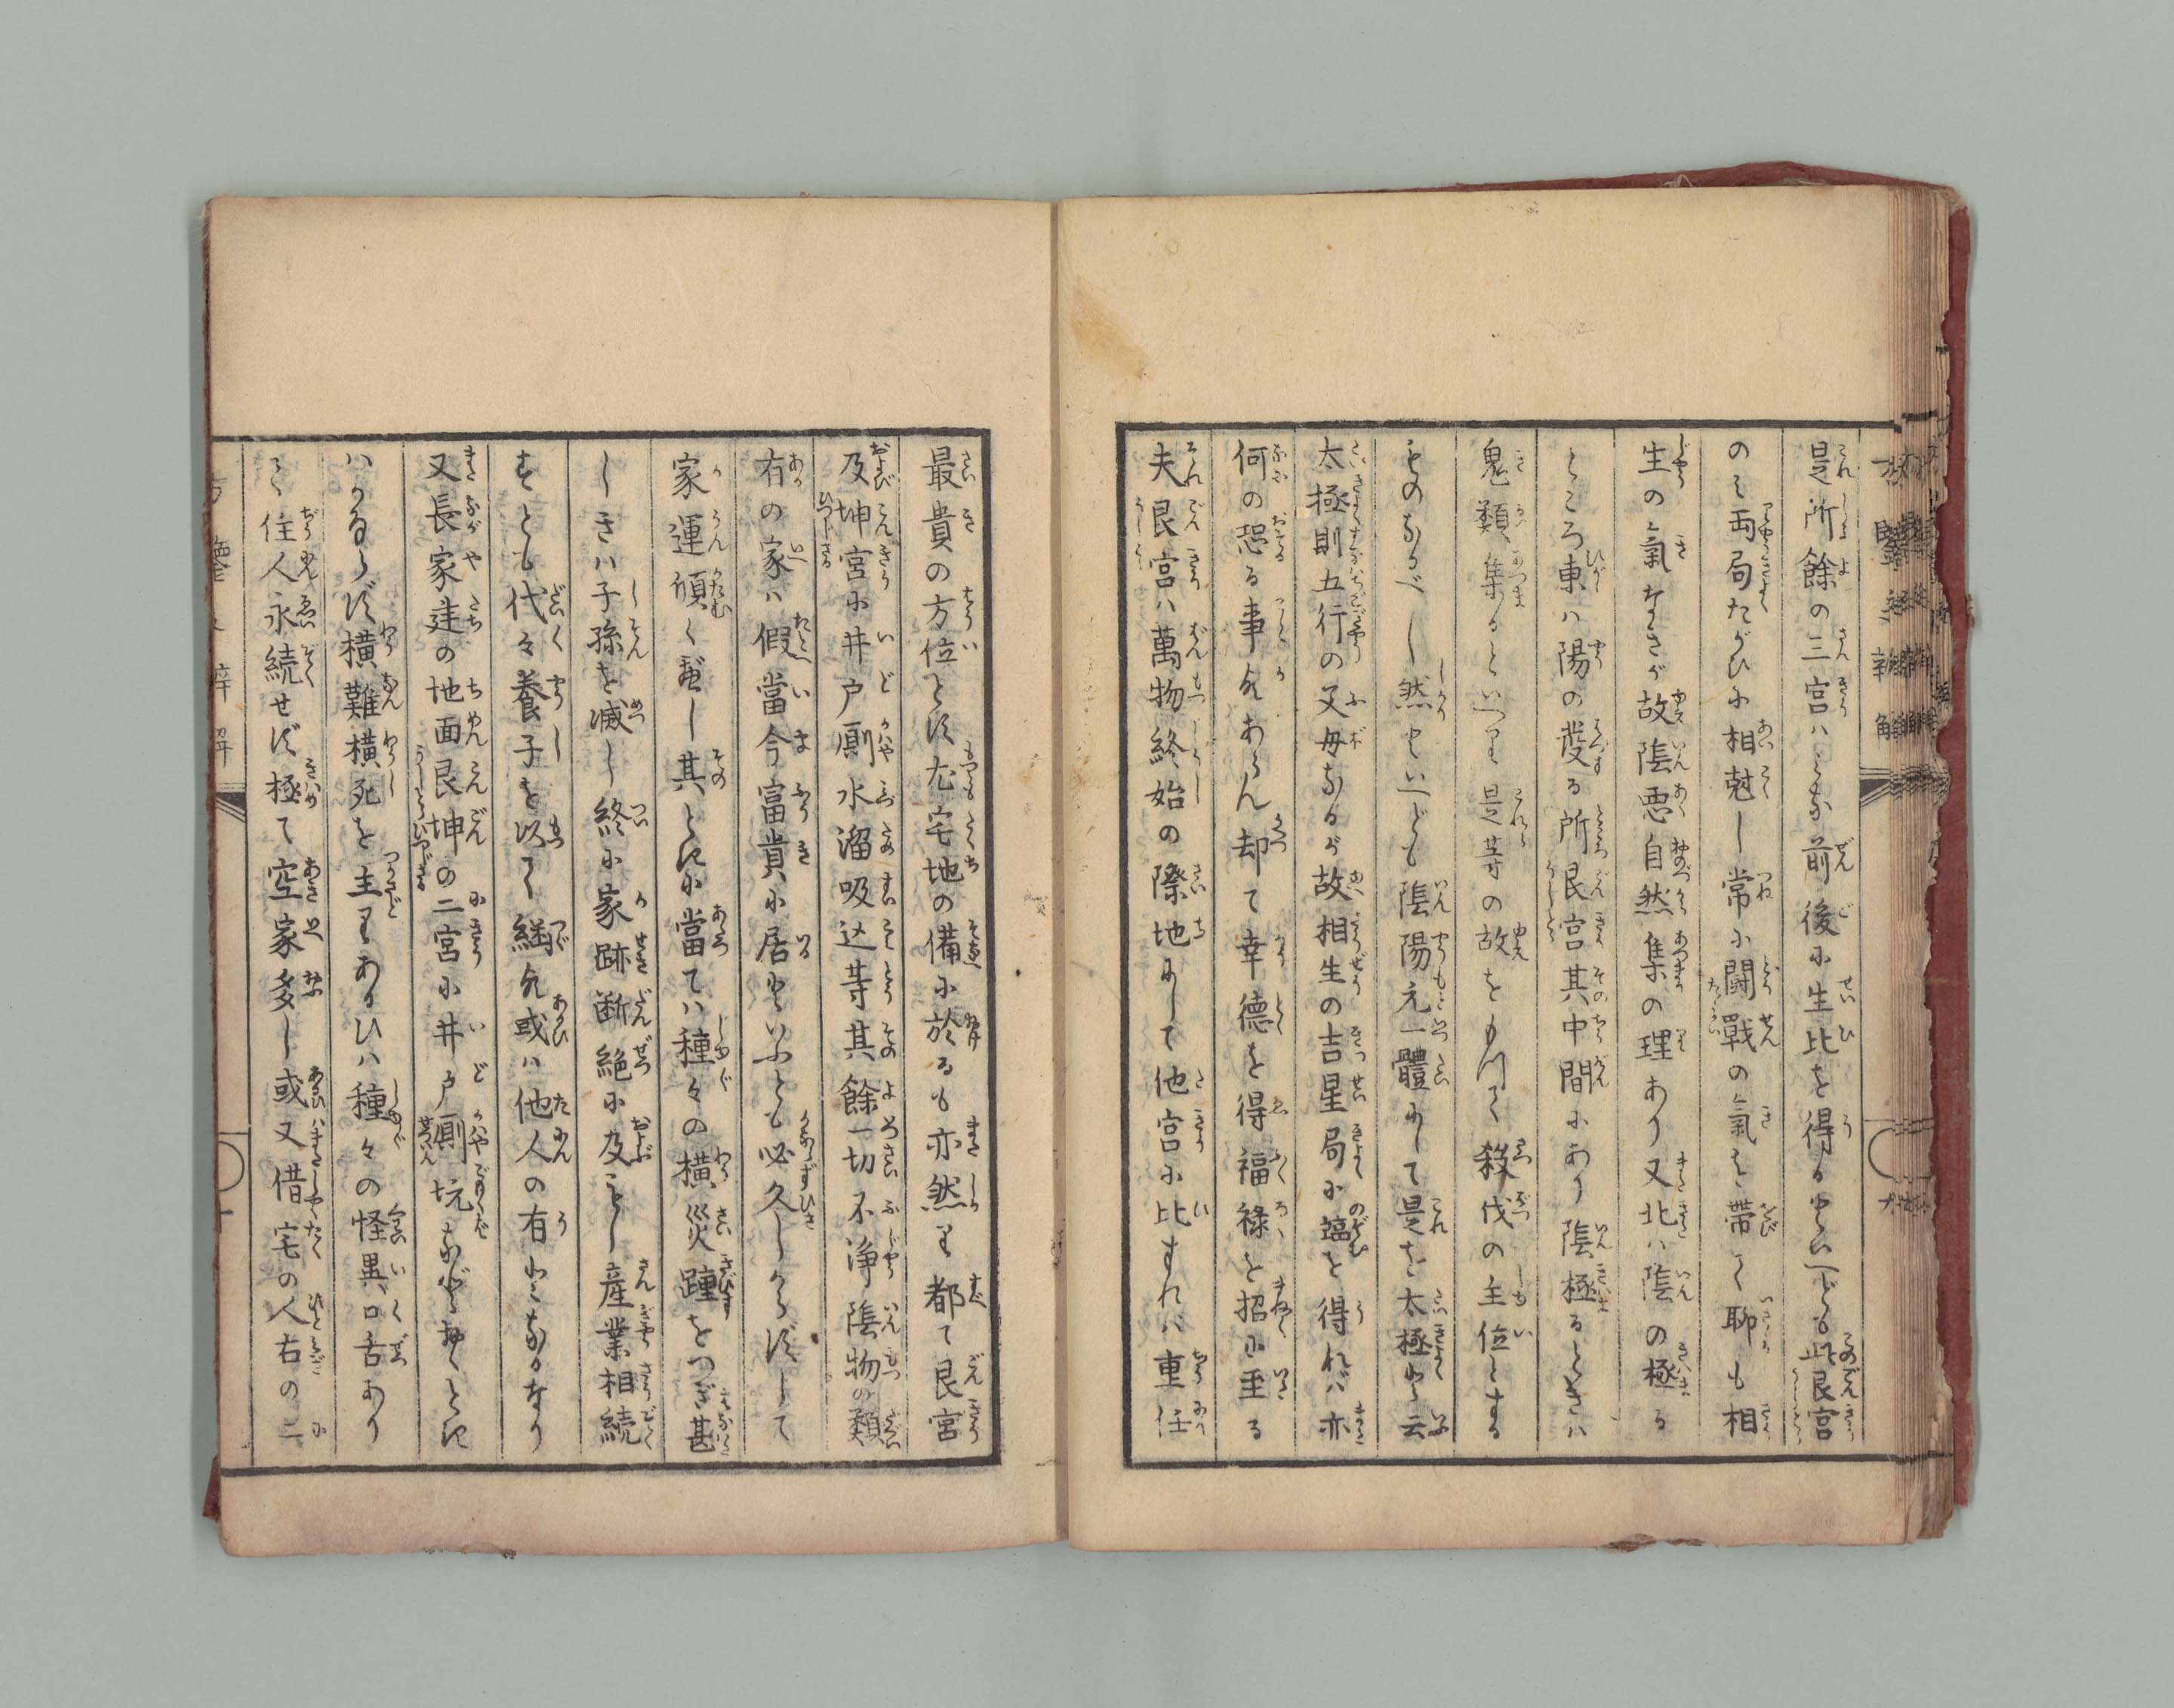 是所餘の三宮ハミな前後に生比を得るといへども此艮宮
のミ両局たがひに相尅し常に闘戰の氣を帯て聊も相
生の氣なきが故陰悪自然集の理あり又北ハ陰の極る
ところ東ハ陽の發る所艮宮其中間にあり陰極るときハ
鬼類集るといへり是等の故をもつて殺伐の主位とする
ものなるべし然といへども陰陽元一體にして是を太極と云
太極則五行の父母なるが故相生の吉星局に臨を得れバ亦
何の恐る事欤あらん却て幸德を得福祿を招に至る
夫艮宮ハ萬物終始の際地にして他宮に比すれバ重任
最貴の方位とす尤宅地の備に於るも亦然り都て艮宮
及坤宮に井戸厠水溜吸込等其餘一切不浄陰物の類
有の家ハ假當今富貴に居といふとも必久しからずして
家運傾く発し其ときに當てハ種々の横災踵をつぎ甚
しきハ子孫を滅し終に家跡断絶に及べし産業相続
すとも代々養子を以て継欤或ハ他人の有となるなり
又長家建の地面艮坤の二宮に井戸厠坑などおくとき
ハかならず横難横死を主りあるひハ種々の怪異口舌あり
て住人永続せず極て空家多し或又借宅の人右の二